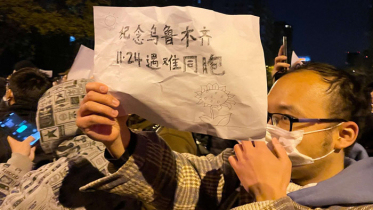 纪念乌鲁木齐
11.24遇难同胞